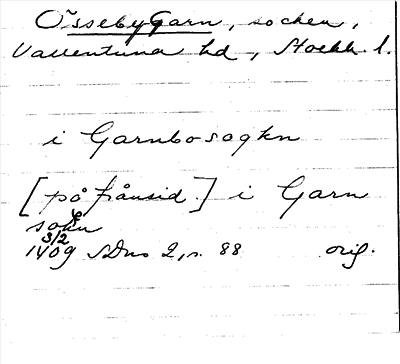 ÖssebyGarn, socken,
Vallentuna hd, Stockh. l.
i Garnbosogkn
[på frånsid.] i Garn
sokn
3/2
1409 SDns 2, s. 88 orig.